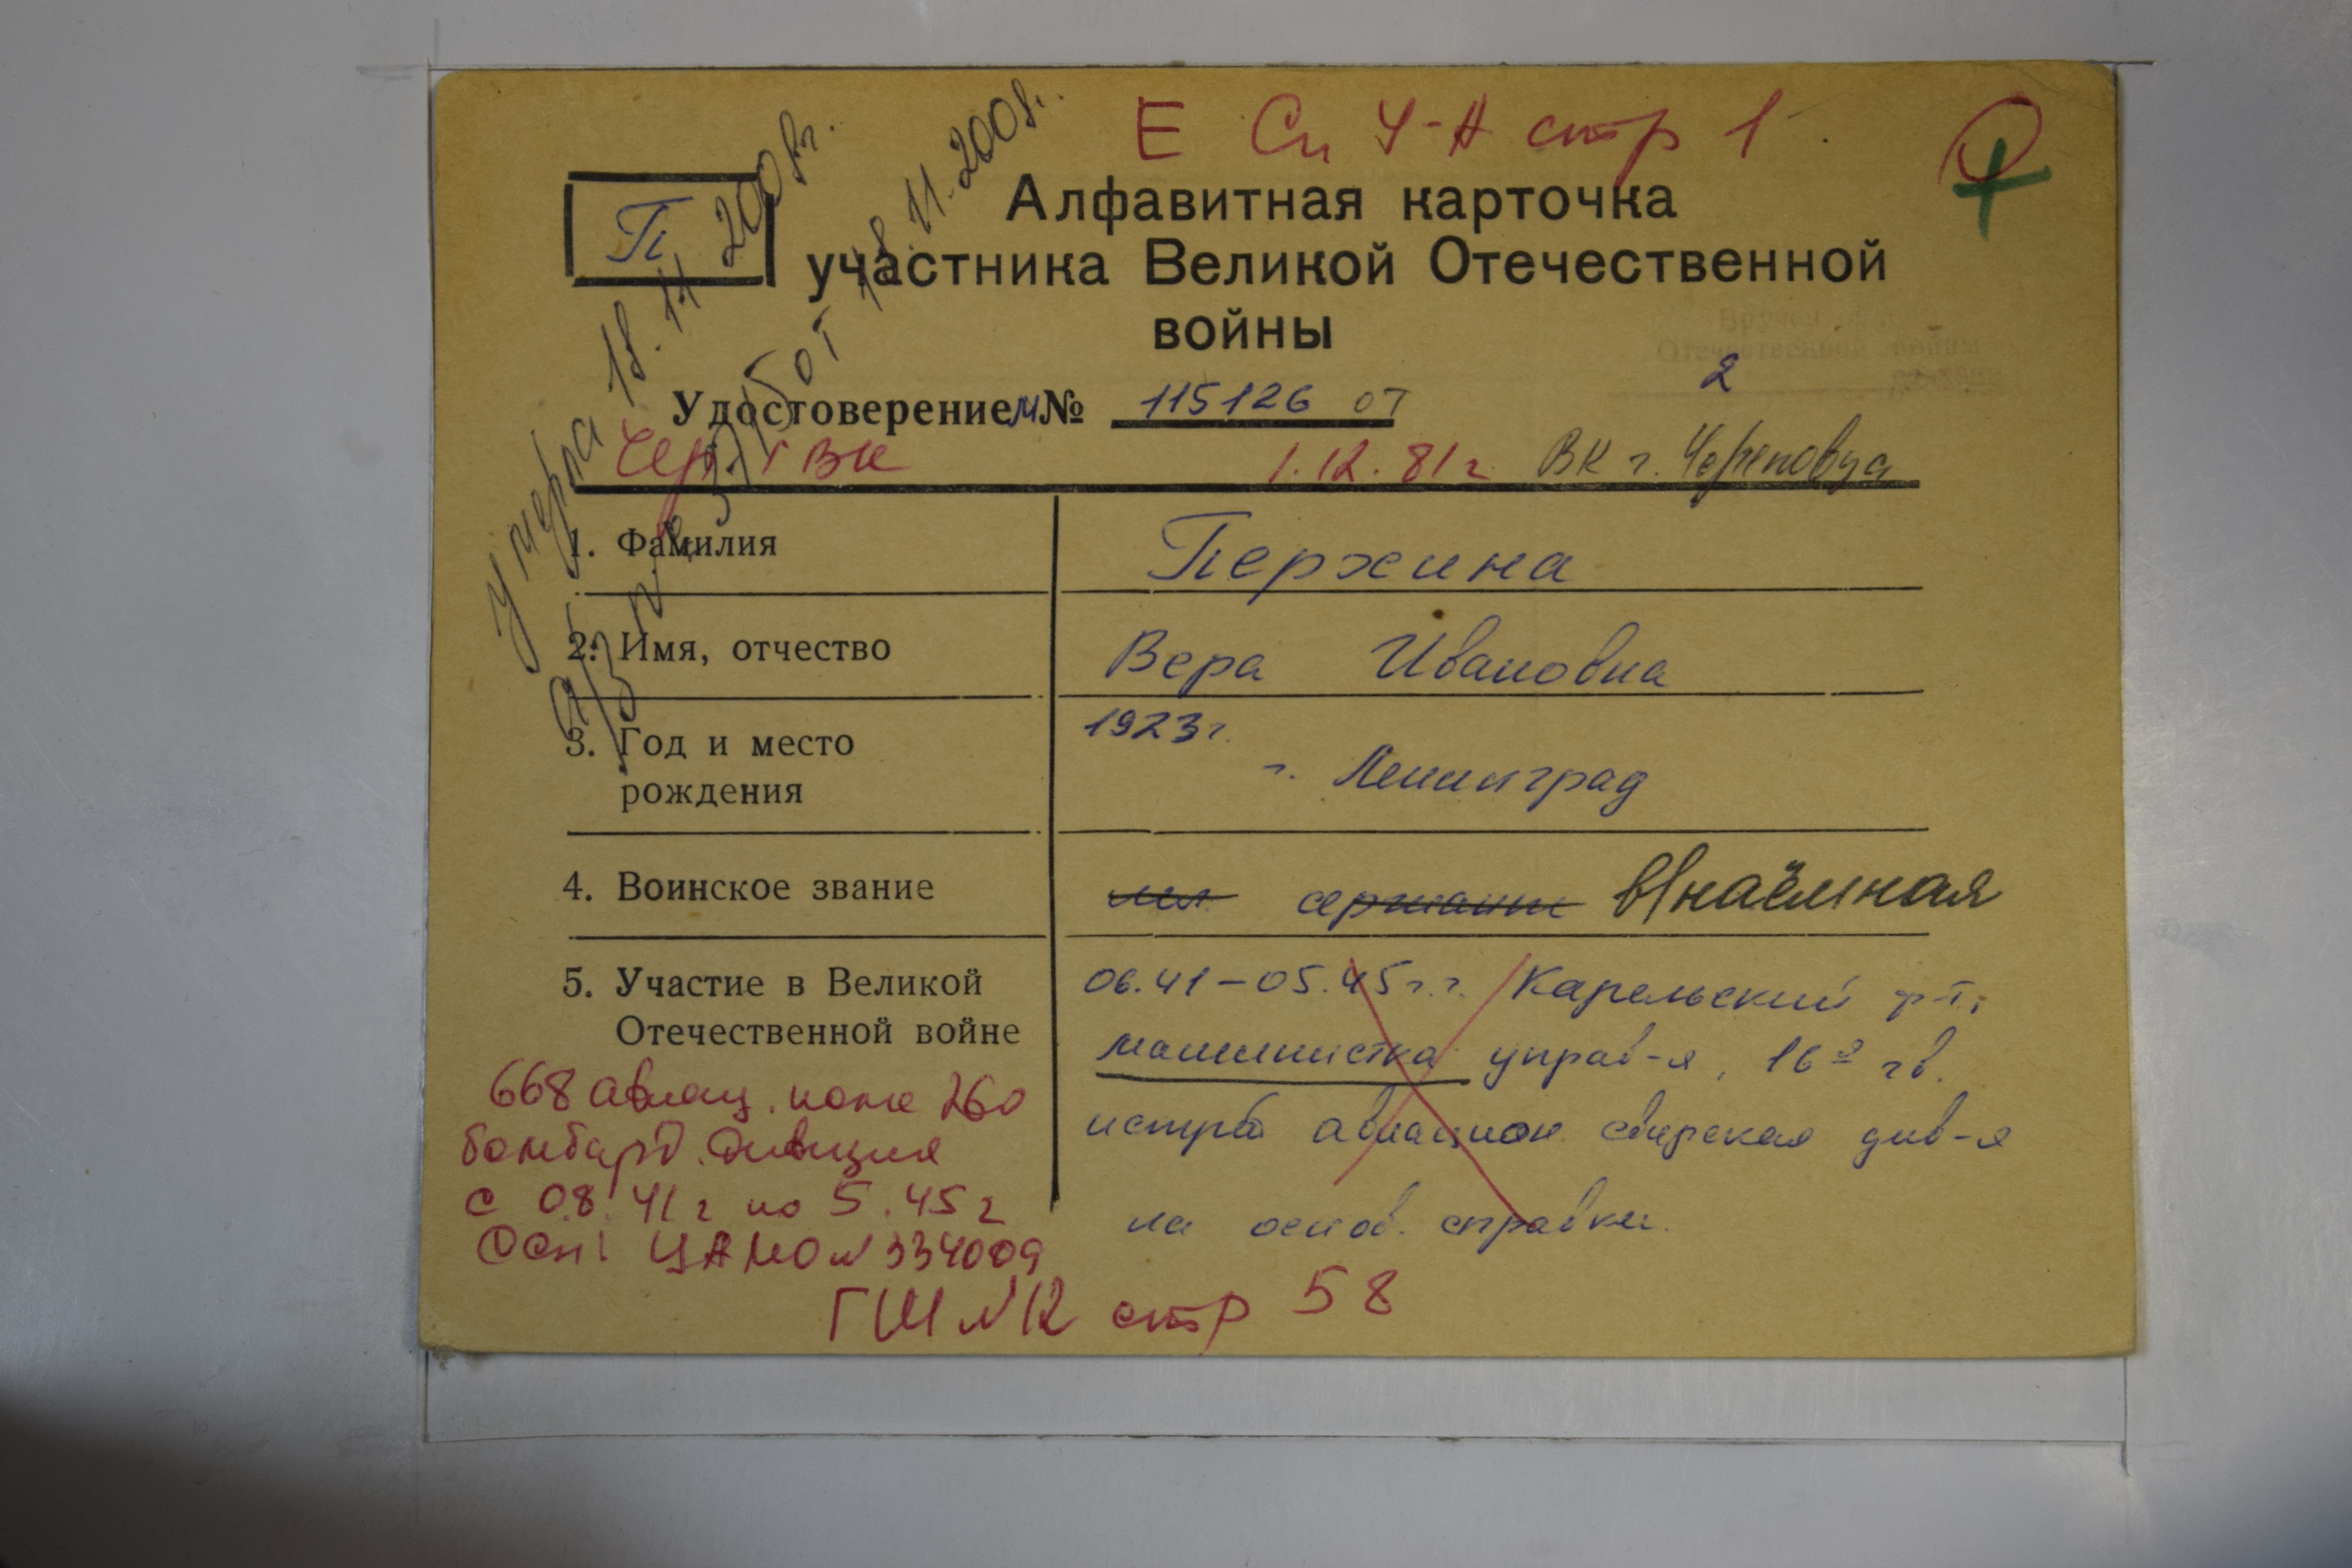 Е Сп Ч-Н стр 1
П
Алфавитная карточка
участника Великой Отечественной
войны
Вруч
Отечественной войны
2
Удостоверение М № 115126 от
Чер. ГВК 1.12.81 г. ВК г. Череповца
умерла 18.11.2008г.
а/з № 3715 от 18.11.2008г.
1. Фамилия Пержина
2. Имя, отчество Вера Ивановна
3. Год и место 1923 г.
рождения г. Ленинград
4. Воинское звание мл. сержант в/наёмная
5. Участие в Великой 06.41-05.45 г.г. Карельский ф-т,
Отечественной войне машинистка управ-я, 16я гв.
истреб авиацион. свирская див-я
на основ. справки.
668 авиац. полк 260
бомбард. дивизия
с 08.41 г по 5.45 г
Осн: ЦАМО № 334009
ГШ №12 стр 58